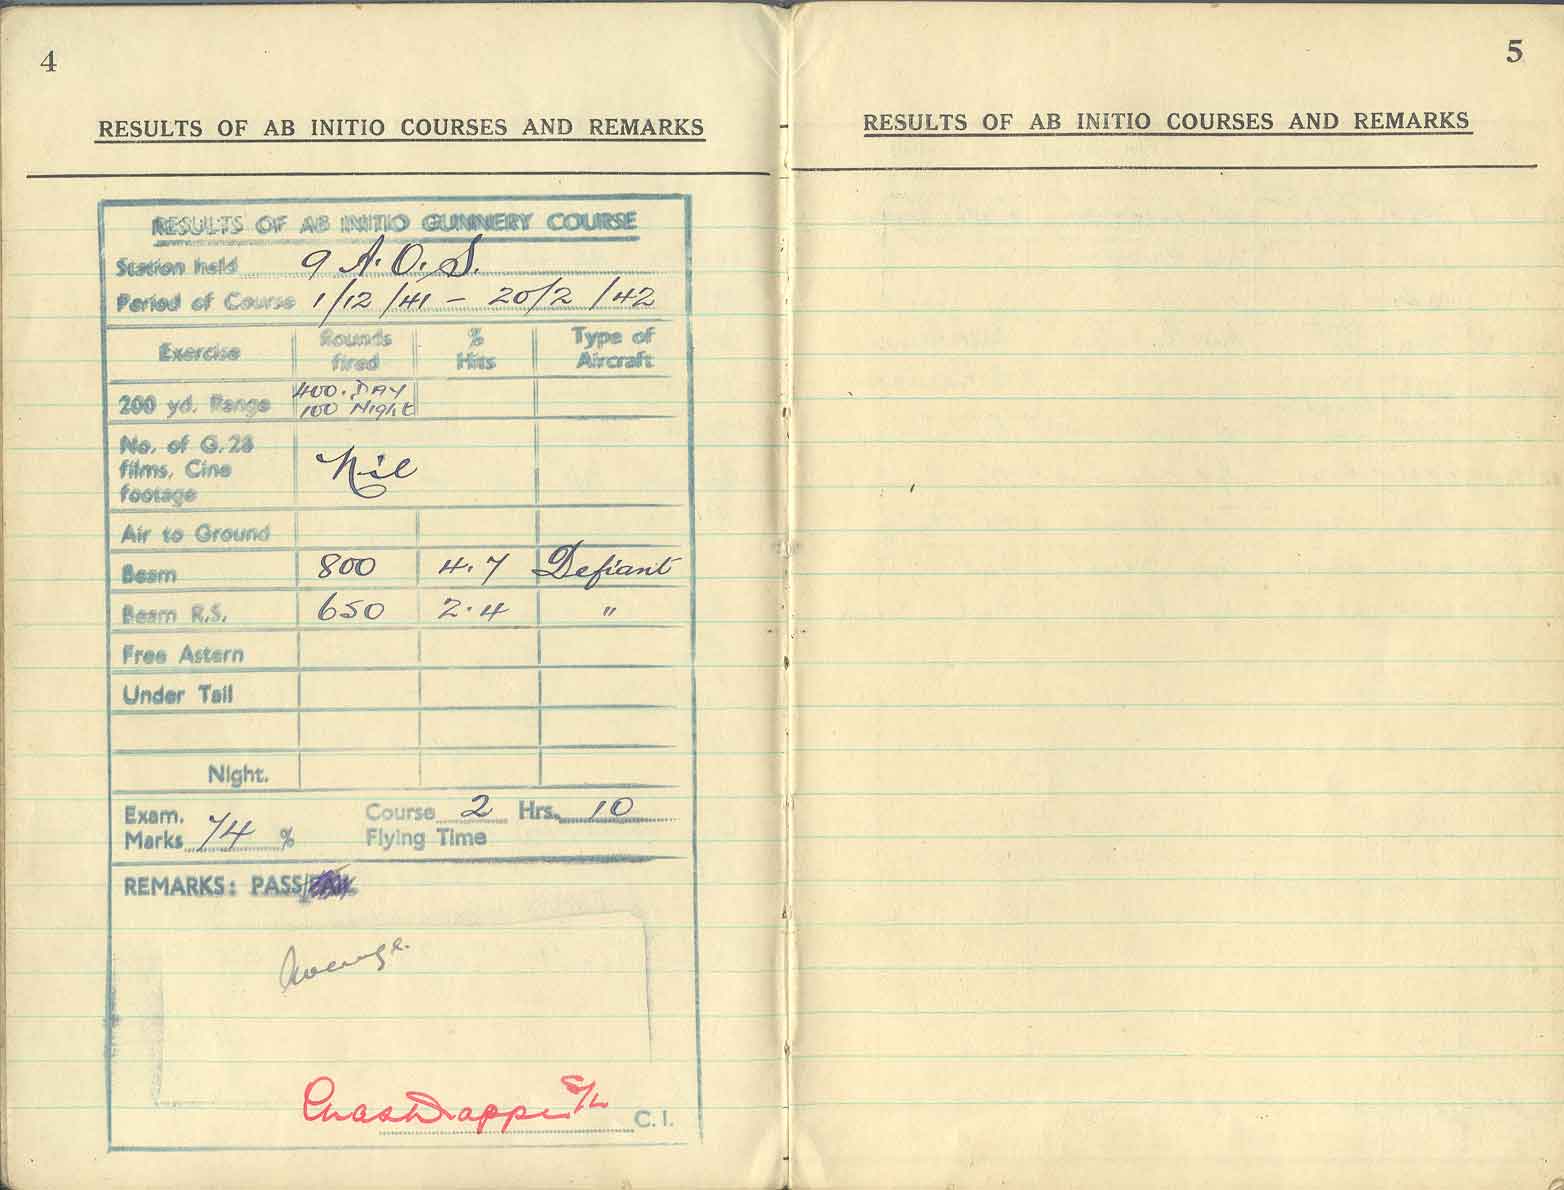 4
RESULTS OF AB INITIO COURSES AND REMARKS
RESULTS OF AB INITIO GUNNERY COURSE
Station held 9 A.O.S.
Period of Course 1/12/41 - 20/2/42
Exercise Rounds fired % Hits Type of Aircraft
200 yd. Range 400. DAY 100 Night
No. of G.28 films, Cine footage Nil
Air to Ground
Beam 800 4.7 Defiant
Beam R.S. 650 2.4 "
Free Astern
Under Tail
Night.
Exam. Marks 74 % Course 2 Hrs. 10
Flying Time
REMARKS: PASS/FAIL
Average.
S/L
C. I.
5
RESULTS OF AB INITIO COURSES AND REMARKS